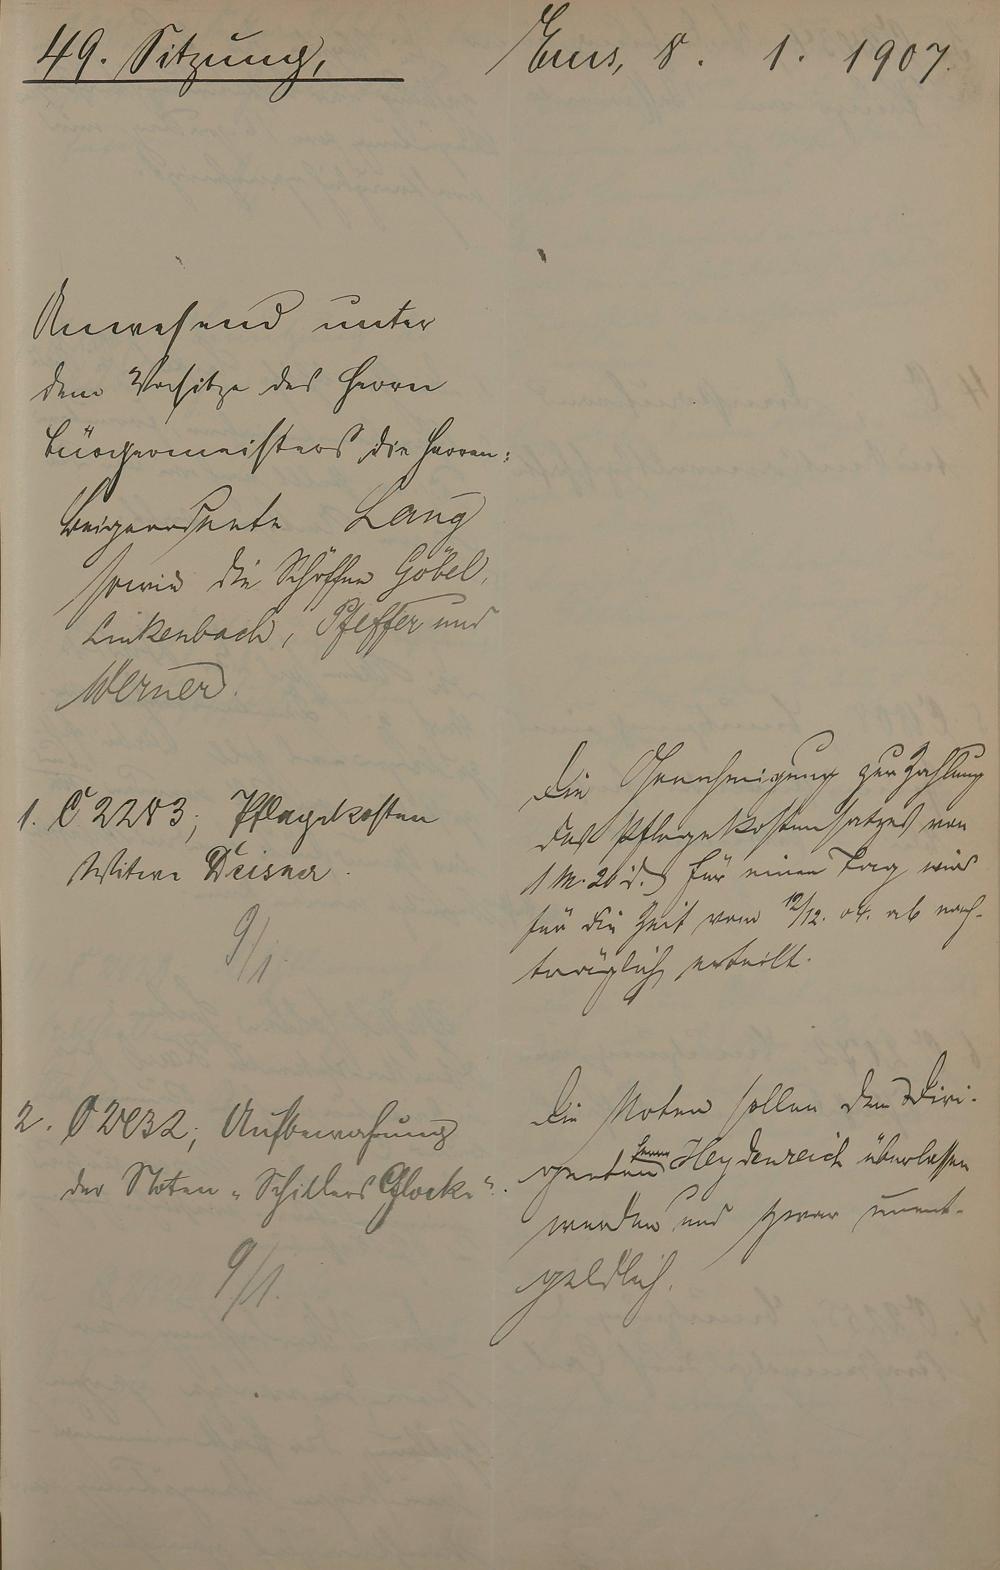 49. Sitzung, Ems, 8. 1. 1907.
Anwesend unter
dem Vorsitze des Herrn
Bürgermeisters die Herren:
Beigeordnete Lang
sowie die Schöffen Göbel,
Linkenbach, Pfeffer und
Werner.
1. C 2283; Pflegekosten
Witwe Deisner.
9/1.
Die Genehmigung zur Zahlung
des Pflegekostensatzes von
1 M. 20 d. für einen Tag wird
für die Zeit vom 12/12. 04. ab nach-
träglich erteilt.
2. Aufbewahrung
der Noten „Schillers Glocke“.
9/1.
Die Noten sollen dem Diri-
genten Herrn Heydenreich überlassen
werden und zwar unent-
geldlich.